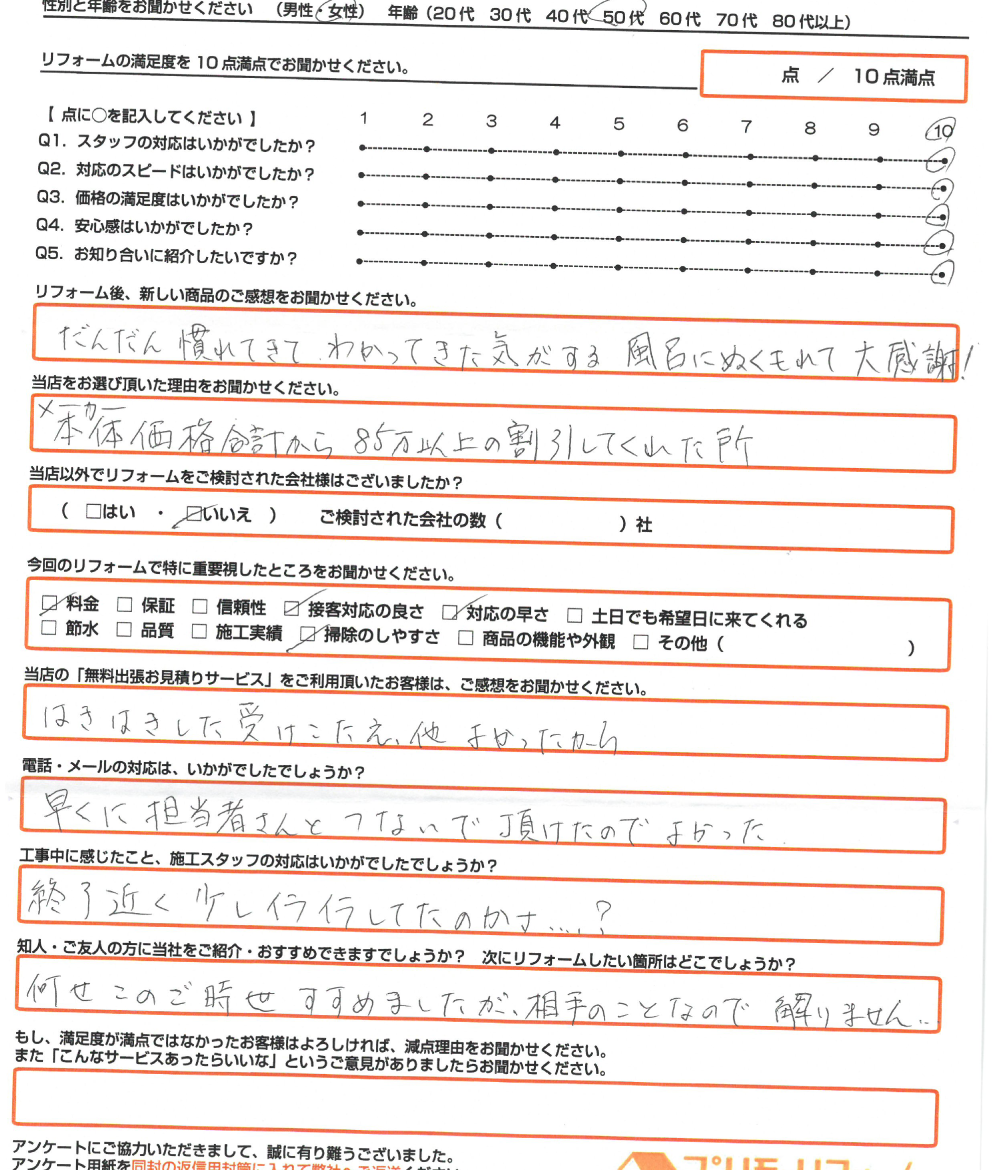 性別と年齢をお聞かせください （男性・女性） 年齢（20代 30代 40代 50代 60代 70代 80代以上）
リフォームの満足度を10点満点でお聞かせください。
点 ／ 10点満点
【 点に○を記入してください 】 1 2 3 4 5 6 7 8 9 10
Q1. スタッフの対応はいかがでしたか？
Q2. 対応のスピードはいかがでしたか？
Q3. 価格の満足度はいかがでしたか？
Q4. 安心感はいかがでしたか？
Q5. お知り合いに紹介したいですか？
リフォーム後、新しい商品のご感想をお聞かせください。
だんだん慣れてきて、わかってきた気がする 風呂にぬくもれて大感謝!
当店をお選び頂いた理由をお聞かせください。
メーカー
本体価格合計から85万以上の割引してくれた所
当店以外でリフォームをご検討された会社様はございましたか？
（ □はい ・ □いいえ ） ご検討された会社の数（ ）社
今回のリフォームで特に重要視したところをお聞かせください。
□ 料金 □ 保証 □ 信頼性 □ 接客対応の良さ □ 対応の早さ □ 土日でも希望日に来てくれる
□ 節水 □ 品質 □ 施工実績 □ 掃除のしやすさ □ 商品の機能や外観 □ その他（ ）
当店の「無料出張お見積りサービス」をご利用頂いたお客様は、ご感想をお聞かせください。
はきはきした受けこたえ、他 よかったから
電話・メールの対応は、いかがでしたでしょうか？
早くに担当者さんとつないで頂けたのでよかった
工事中に感じたこと、施工スタッフの対応はいかがでしたでしょうか？
終了近く少しイライラしてたのかナ....?
知人・ご友人の方に当社をご紹介・おすすめできますでしょうか？ 次にリフォームしたい箇所はどこでしょうか？
何せこのご時世 すすめましたが、相手のことなので解りません..
もし、満足度が満点ではなかったお客様はよろしければ、減点理由をお聞かせください。
また「こんなサービスあったらいいな」というご意見がありましたらお聞かせください。
アンケートにご協力いただきまして、誠に有り難うございました。
アンケート用紙を同封の返信用封筒に入れて弊社へご返送ください
プリモ リフォーム